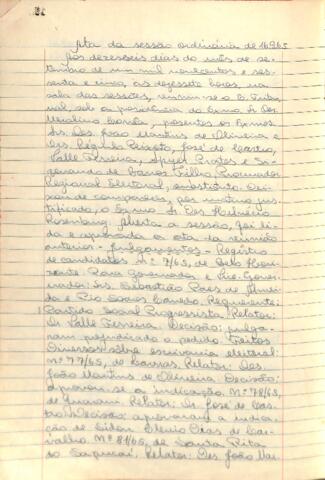 Ata da sessão ordinária de 16.9.65
Aos dezesseis dias do mês de se-
tembro de um mil novecentos e ses-
senta e cinco, às dezessete horas, na
sala das sessões, reuniu-se o E. Tribu-
nal, sob a presidência do Exmo. Sr. Des.
presentes os Exmos.
Srs. Des. João Martins de Oliveira e
Drs. Régulo Peixoto, José de Castro,
Valle Ferreira, Prates e
de Barros Filho, Procurador
Regional Eleitoral, substituto. Dei-
xou de comparecer, por motivo jus-
tificado, o Exmo. Sr. Des. Helvécio
Rosenburg. Aberta a sessão, foi li-
da e aprovada a ata da reunião
anterior - Julgamentos - Registro
de candidatos nº 7/65, de Belo Hori-
zonte. Para Governador e Vice-Gover-
nador: Srs. Sebastião Paes de Almei-
da e Pio Soares Canêdo. Requerente:
Partido Social Progressista. Relator:
Dr. Valle Ferreira. Decisão: julga-
ram prejudicado o pedido. Feitos
Diversos sôbre escrivania eleitoral:
nº 77/65, de Relator: Des.
João Martins de Oliveira. Decisão:
aprovou-se a indicação. Nº 78/65,
de Guarani. Relator: Dr. José de Cas-
tro. Decisão: aprovaram a indica-
ção de Dias de Car-
valho. Nº 81/65, de Santa Rita
do Sapucaí. Relator: Des. João Mar-